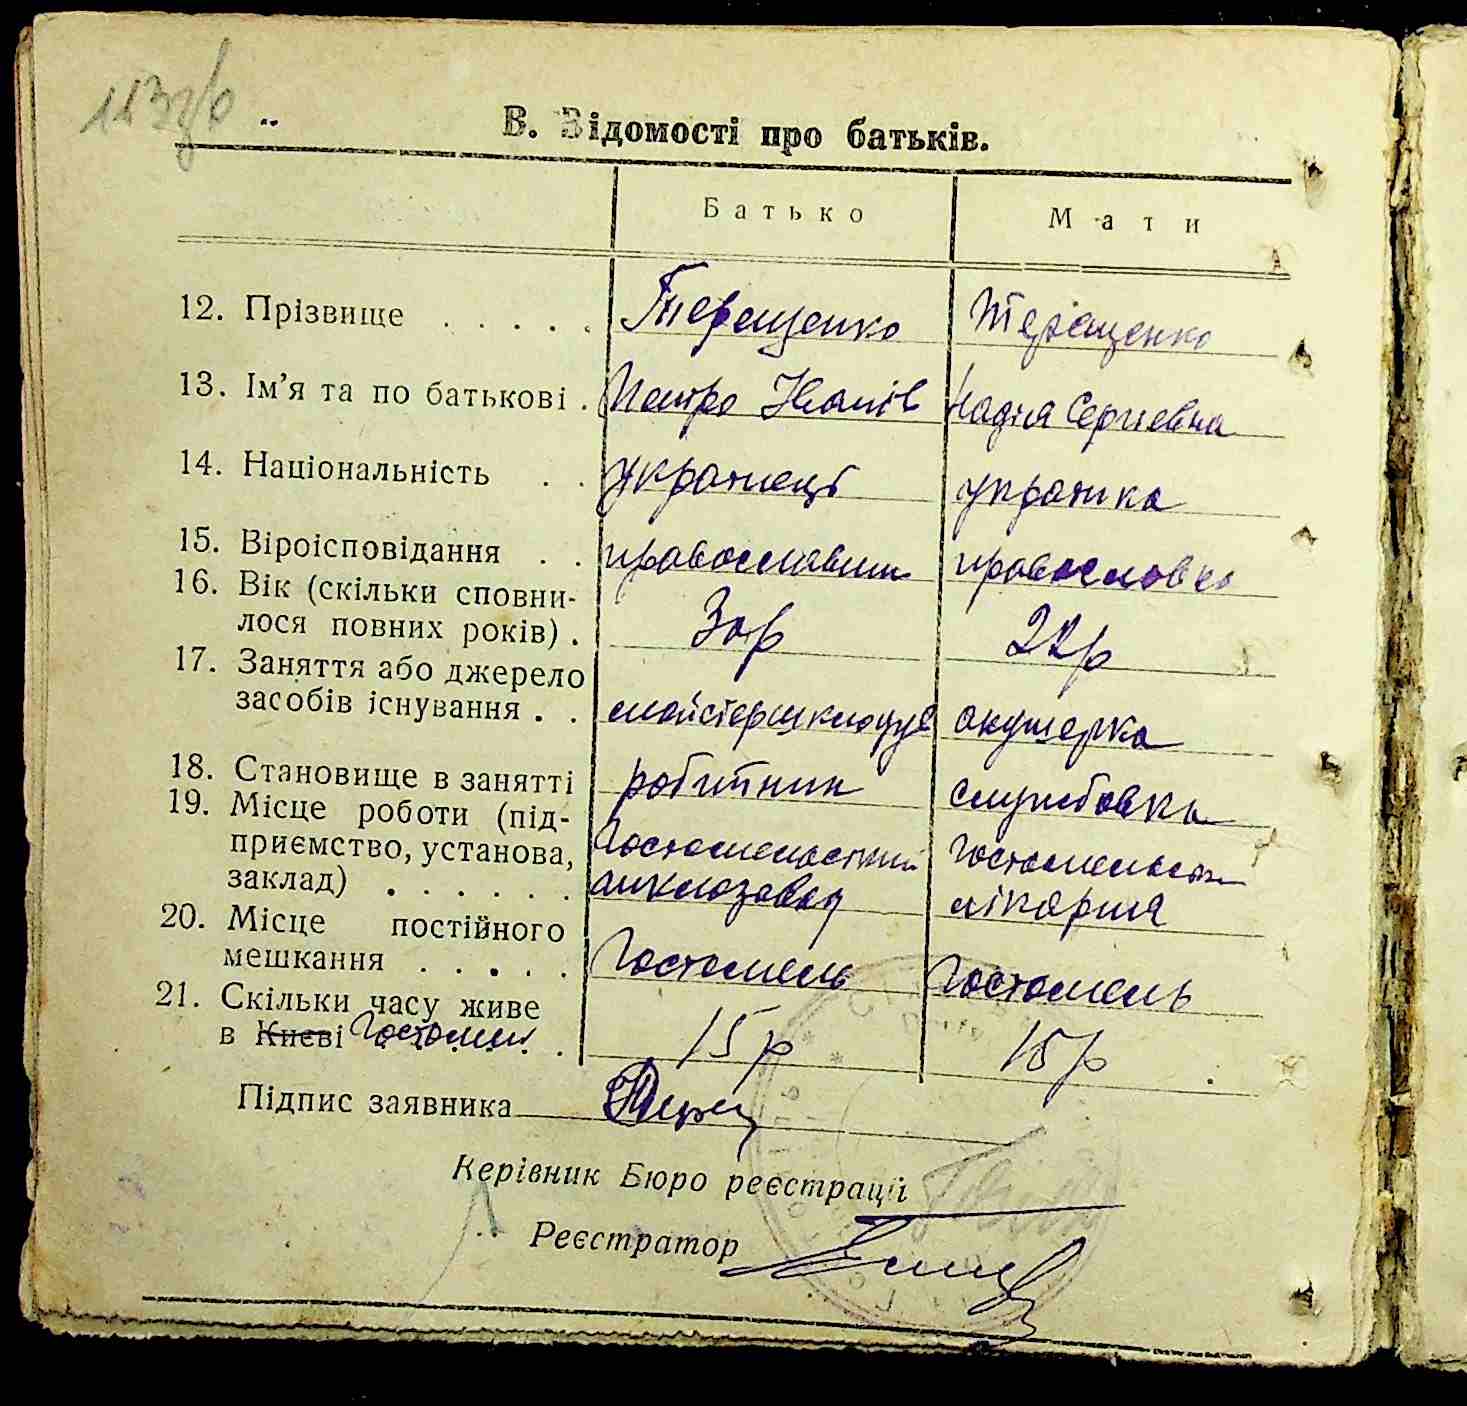 В. Відомості про батьків.
Батько Мати
12. Прізвище . . . . . Терещенко Терещенко
13. Ім’я та по батькові . Петро Іванів Надія Сергієвна
14. Національність . . українець українка
15. Віроісповідання . . православний православна
16. Вік (скільки сповни-
лося повних років) . 30р 22р
17. Заняття або джерело
засобів існування . . майстер акушерка
18. Становище в занятті робітник службовка
19. Місце роботи (під-
приємство, установа, Гостомельський Гостомельська
заклад) . . . . . . шклозавод лікарня
20. Місце постійного
мешкання . . . . . Гостомель Гостомель
21. Скільки часу живе
в Києві Гостомелі . 15р 15р
Підпис заявника
Керівник Бюро реєстрації
Реєстратор